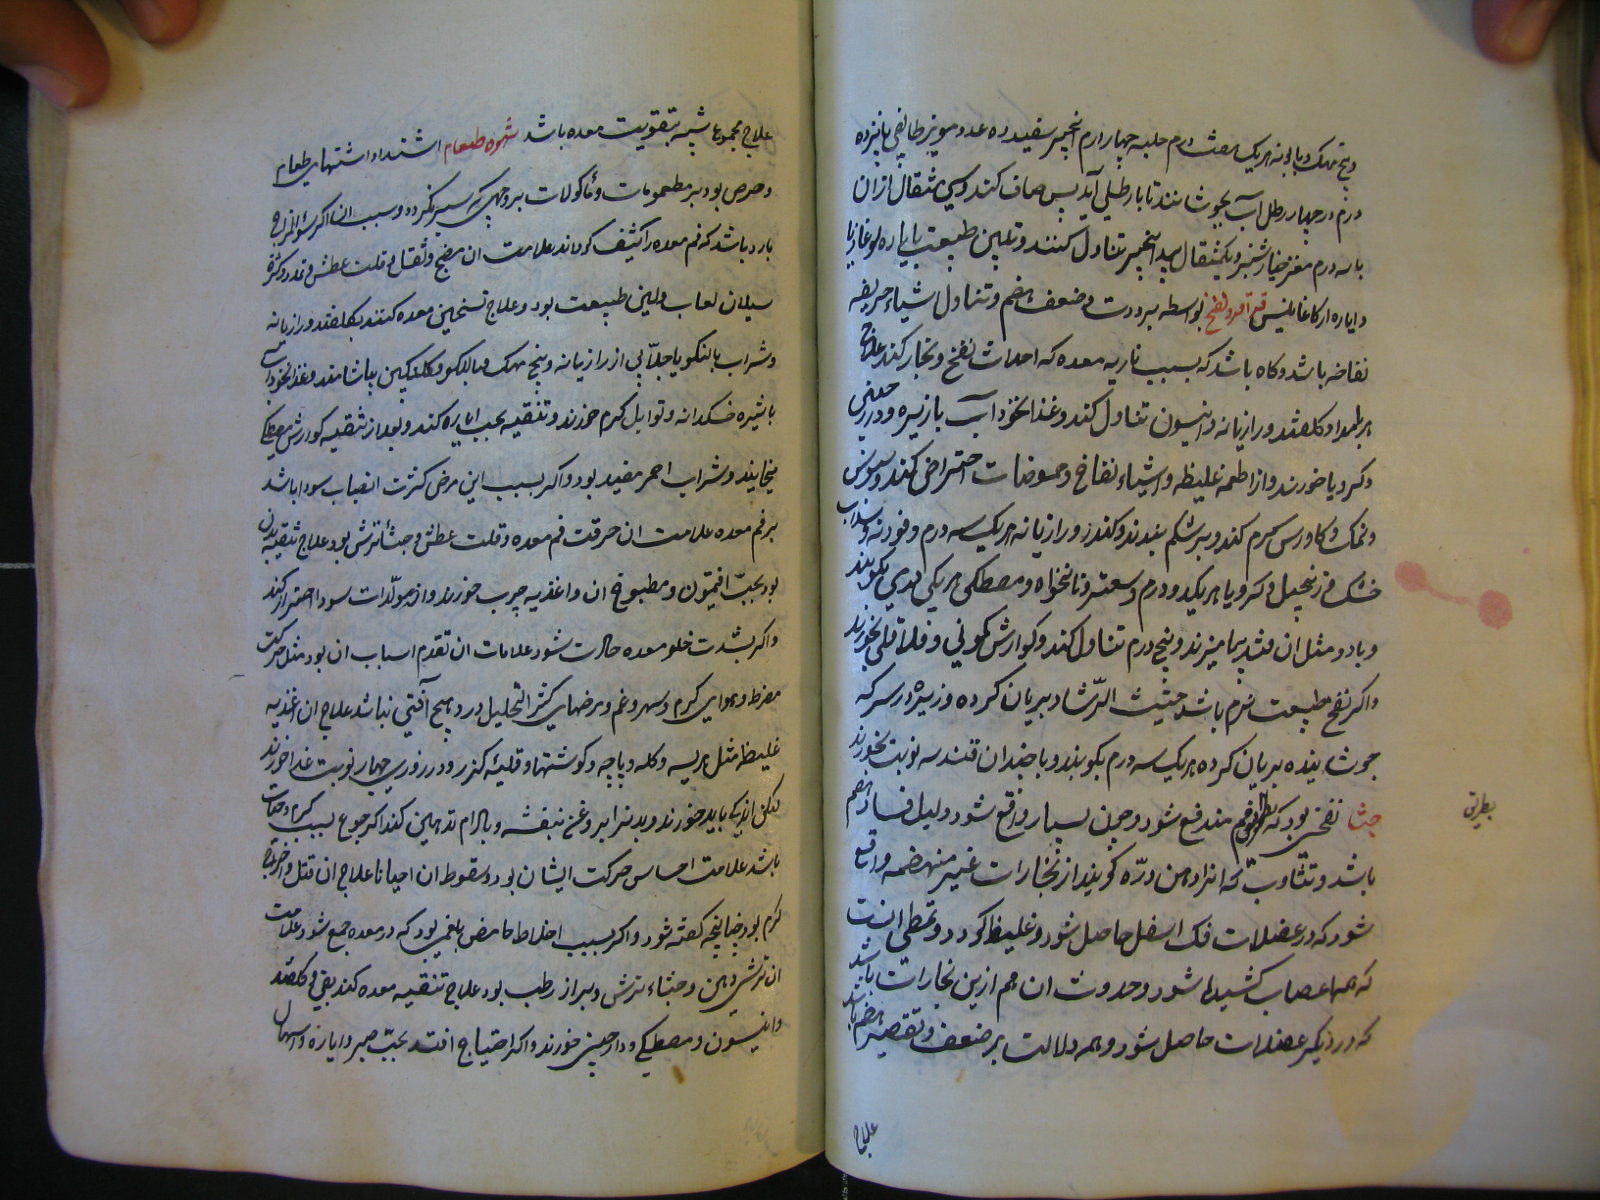 وبیخ مهک وبابونه هریک هشت درم حلبه چهار درم انجیر سفید ده عدد مویز طائفی پانزده
درم در چهار رطل آب بجوشانند تا با رطلی آید پس صاف کنند وسی مثقال ازان
با سه درم مغز خیارشنبر ویکمثقال بیدانجیر تناول کنند وتلیین طبیعت بایاره لوغاذیا
وایاره ارکاغانیس قراقر ونفخ بواسطه برودت وضعف هضم وتناول اشیاء حریفه
نفاخه باشد وکاه باشد که بسبب ناریه معده که احداث نفخ وبخار کند علاج
کلقند ورازیانه وانیسون تناول کند وغذا نخوداب با زیره ودارچینی
وکرویا خورند واز اطعمه غلیظه واشیاء نفاخ وحموضات احتراض کنند وسبوس
ونمک وکاورس کرم کنند وبر شکم بندند وکندر ورازیانه هریک سه درم وفودنه وسداب
خشک وزنجبیل وکرویا هریک دو درم وسعتر ونانخواه ومصطکی هریکی درمی بکوبند
وبا دو مثل ان قند بیامیزند وپنج درم تناول کند وکوارش کمونی وفلافلی بخورند
واکر نفخ طبیعت نرم باشد حشیت الرشاد بریان کرده وزیره در سرکه
جوشانیده بریان کرده هریک سه درم بکوبند وبا چندان قند سه نوبت بخورند
جشا نفخی بود که فم مندفع شود وچون بسیار واقع شود دلیل فساد هضم
بطریق
باشد وتثاوب که انرا دهن درّه کویند از بخارات غیر منهضمه واقع
شود که در عضلات فک اسفل حاصل شود وغلیظ کردد وتمطی انست
که همه اعصاب کشیده شود وحدوث ان هم ازین بخارات باشد
که در دیکر عضلات حاصل شود وهمه دلالت بر ضعف وتقصیر هضم باشد
علاج
علاج مجموعا شبه بتقویت معده باشد شهوة طعام اشتداد اشتهای طعام
وحرص بود بر مطعومات وماکولات بر وجهی که سیر نکردد وسبب ان اکر سؤ المزاج
بارد باشد که فم معده را کثیف کرداند علامت ان نفخ وثقل وقلت عطش
سیلان لعاب ولین طبیعت بود وعلاج تسخین معده کنند بکلقند ورازیانه
وشراب بالنکو یا جلّابی از رازیانه وبیخ مهک وبالنکو وکلنکبین بیاشامند وغذا نخوداب
با شیره خسکدانه وتوابل کرم خورند وتنقیه بحب ایاره کنند وبعد از تنقیه کوارش مصطکی
میخایند وشراب احمر مفید بود واکر بسبب این مرض کثرت انصباب سودا باشد
بر فم معده علامت ان حرقت فم معده وقلت عطش وجشاء ترش بود علاج تنقیه بدن
بود بحبّ افتیمون ومطبوخ ان واغذیه چرب خورند واز مولّدات سودا احتراز کنند
واکر بشدت خلو معده حادث شود علامات ان تقدم اسباب ان بود مثل حرکت
مفرط وهوای کرم وسهر وغم ومرضهای کثیر التحلیل ودر هیچ آفتی نباشد علاج ان اغذیه
غلیظه مثل هریسه وکله وپاچه وکوشتها وقلیه کزر ودر روزی چهار نوبت غذا خورند
باید خورند وبدنرا بروغن بنفشه وبادام تدهین کنند اکر جوع بسبب کرم وحیات
باشد علامت احساس حرکت ایشان بود وسقوط ان احیانا علاج ان قتل واخراج
کرم بود چنانچه کفته شود واکر بسبب اخلاط حامض بلغمی بود که در معده جمع شود علامت
ان ترشی دهن وجشاء ترش وبراز رطب بود علاج تنقیه معده کنند بقی وکلقند
وانیسون ومصطکی ودارچینی خورند واکر احتیاج افتد بحبّ صبر وایاره واسهال